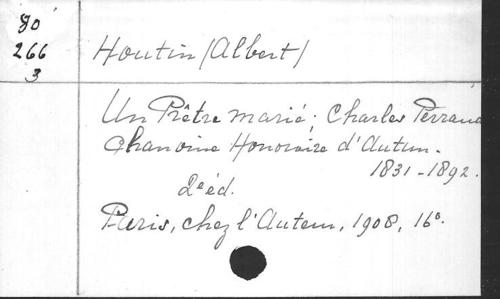 80
266
3
Houtin (Albert)
Un Prêtre marié; Charles Perraud
Chanoine Honoraire d'Autun.
1831-1892.
2e éd.
Paris, chez l'Auteur, 1908, 16°.